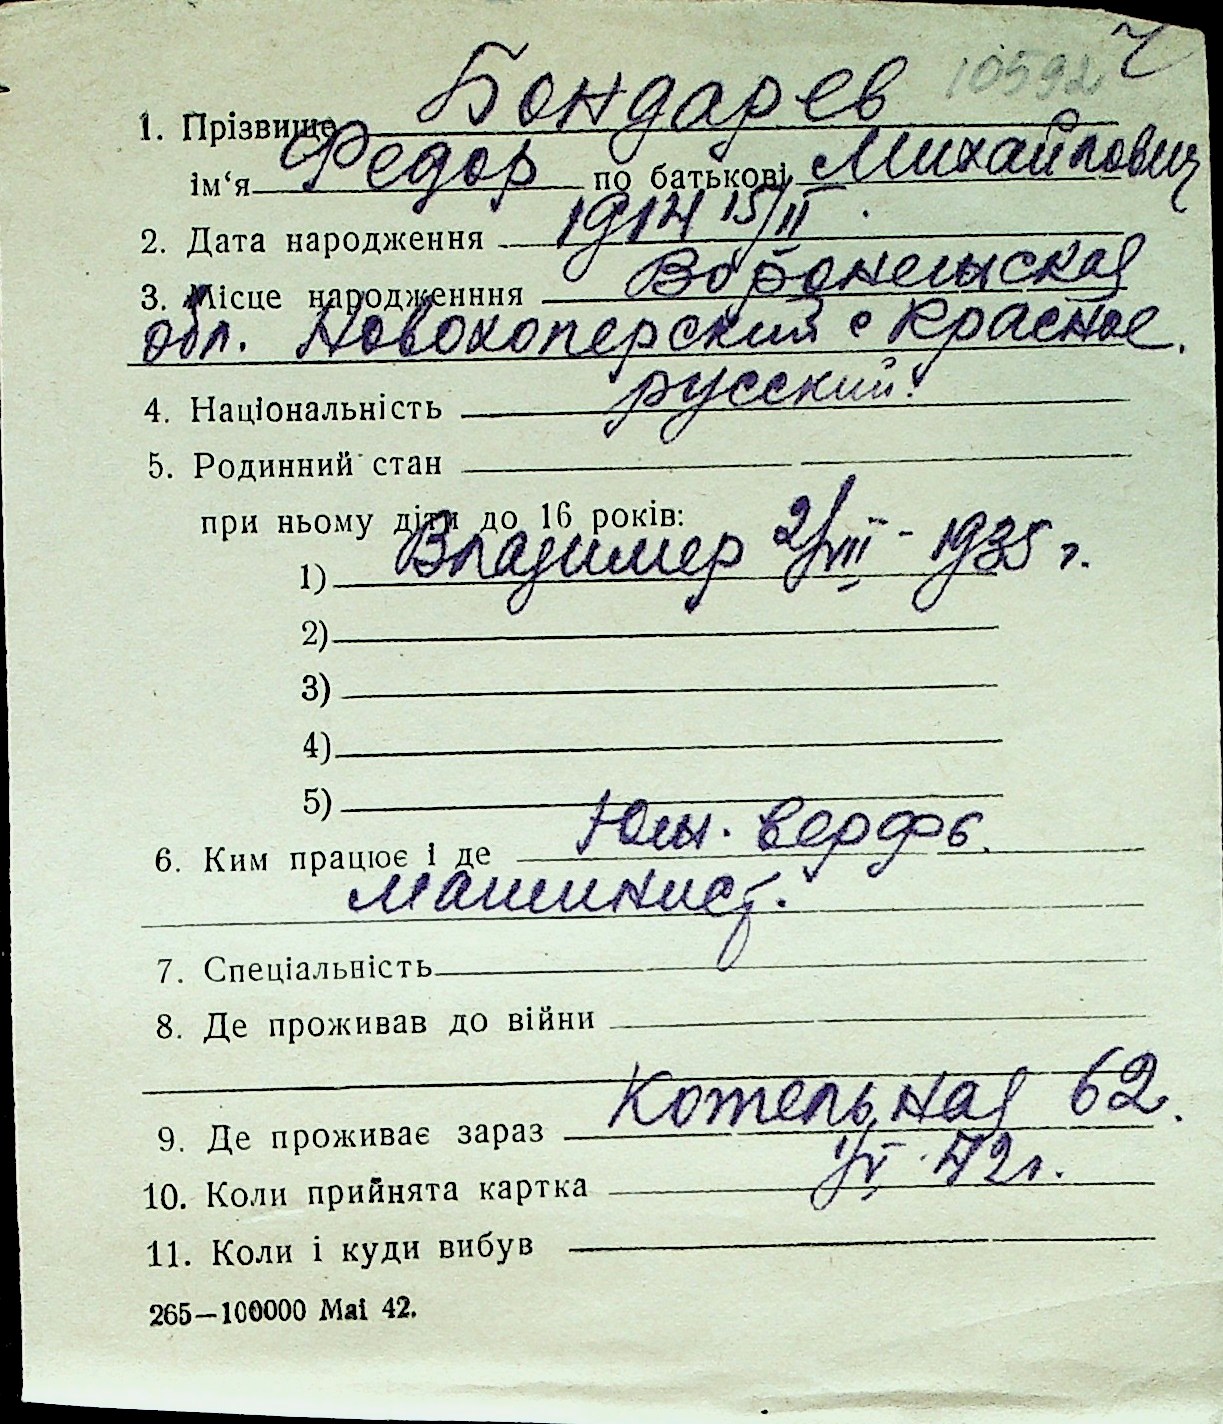 10592
1. Прізвище Бондарев
ім‘я Федор по батькові Михайлович
2. Дата народження 1914 15/II.
3. Місце народженння Воронежская
обл. Новохоперский с Красное.
4. Національність русский.
5. Родинний стан
при ньому діти до 16 років:
1) Владимер 2/VIII - 1935 г.
2)
3)
4)
5)
6. Ким працює і де Южн. верфь.
машинист.
7. Спеціальність
8. Де проживав до війни
9. Де проживає зараз Котельная 62.
10. Коли прийнята картка 42г.
11. Коли і куди вибув
265—100000 Mai 42.